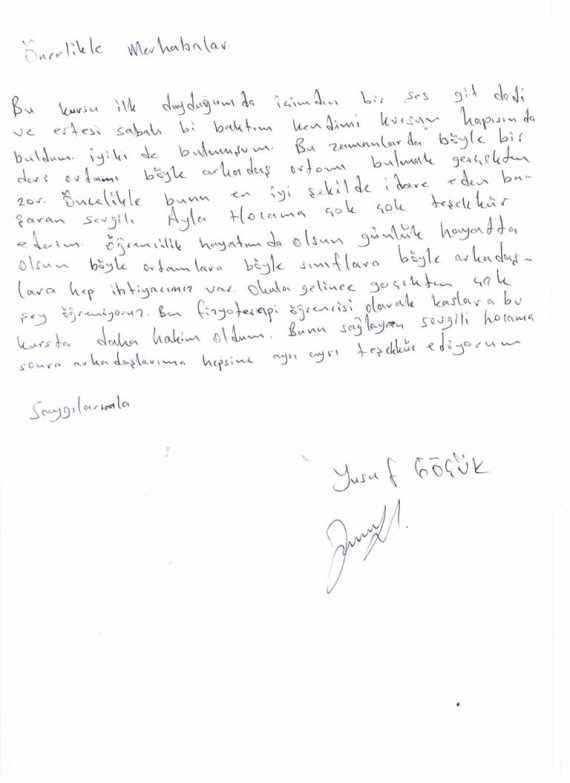 Öncelikle Merhabalar
Bu kursu ilk duyduğumda içimden bir ses git dedi
ve ertesi sabah bi baktım kendimi kursun kapısında
buldum iyiki de bulmuşum. Bu zamanlarda böyle bir
ders ortamı böyle arkadaş ortamı bulmak gerçekten
zor. Öncelikle bunu en iyi şekilde idare eden ba-
şaran sevgili Ayla Hocama çok çok teşekkür
ederim. Öğrencilik hayatımda olsun günlük hayatta
olsun böyle ortamlara böyle sınıflara böyle arkadaş-
lara hep ihtiyacımız var. Okula gelince gerçekten çok
şey öğreniyoruz. Ben fizyoterapi öğrencisi olarak kaslara bu
kursta daha hakim oldum. Bunu sağlayan sevgili hocama
sonra arkadaşlarıma hepsine ayrı ayrı teşekkür ediyorum
Saygılarımla
Yusuf GÖÇÜK